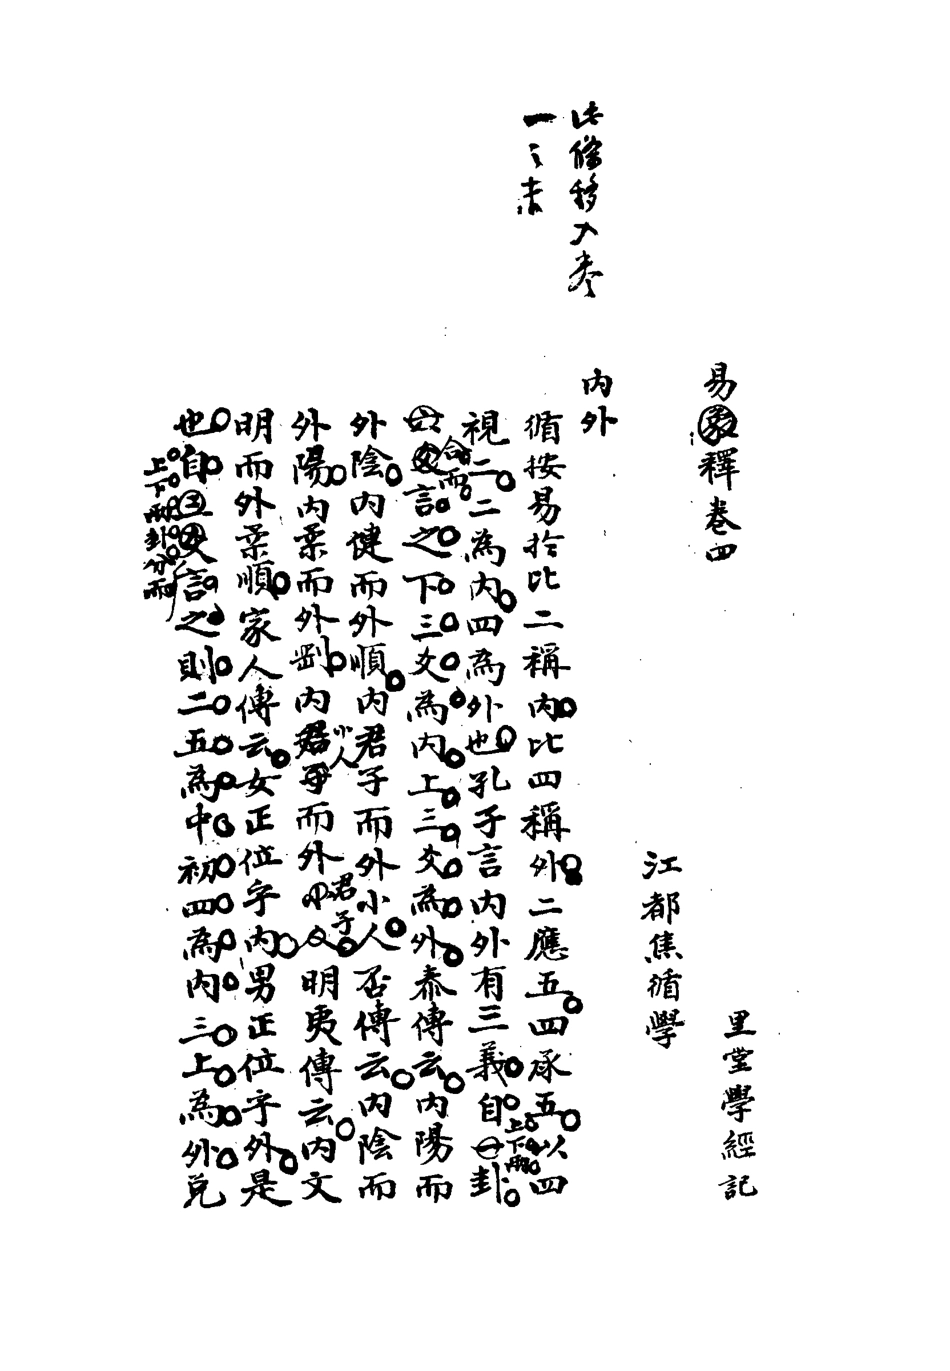 此條移入卷
一之末
里堂學經記
易釋卷四
江都焦循學
内外
循按易於比二稱内比四稱外二應五四承五以四
視二二為内四為外也孔子言内外有三義自上下兩卦
合而言之下三爻為内上三爻為外泰傳云内陽而
外陰内健而外順内君子而外小人否傳云内陰而
外陽内柔而外剛内小人而外君子明夷傳云内文
明而外柔順家人傳云女正位乎内男正位乎外是
也自上下兩卦分而言之則二五為中初四為内三上為外兌